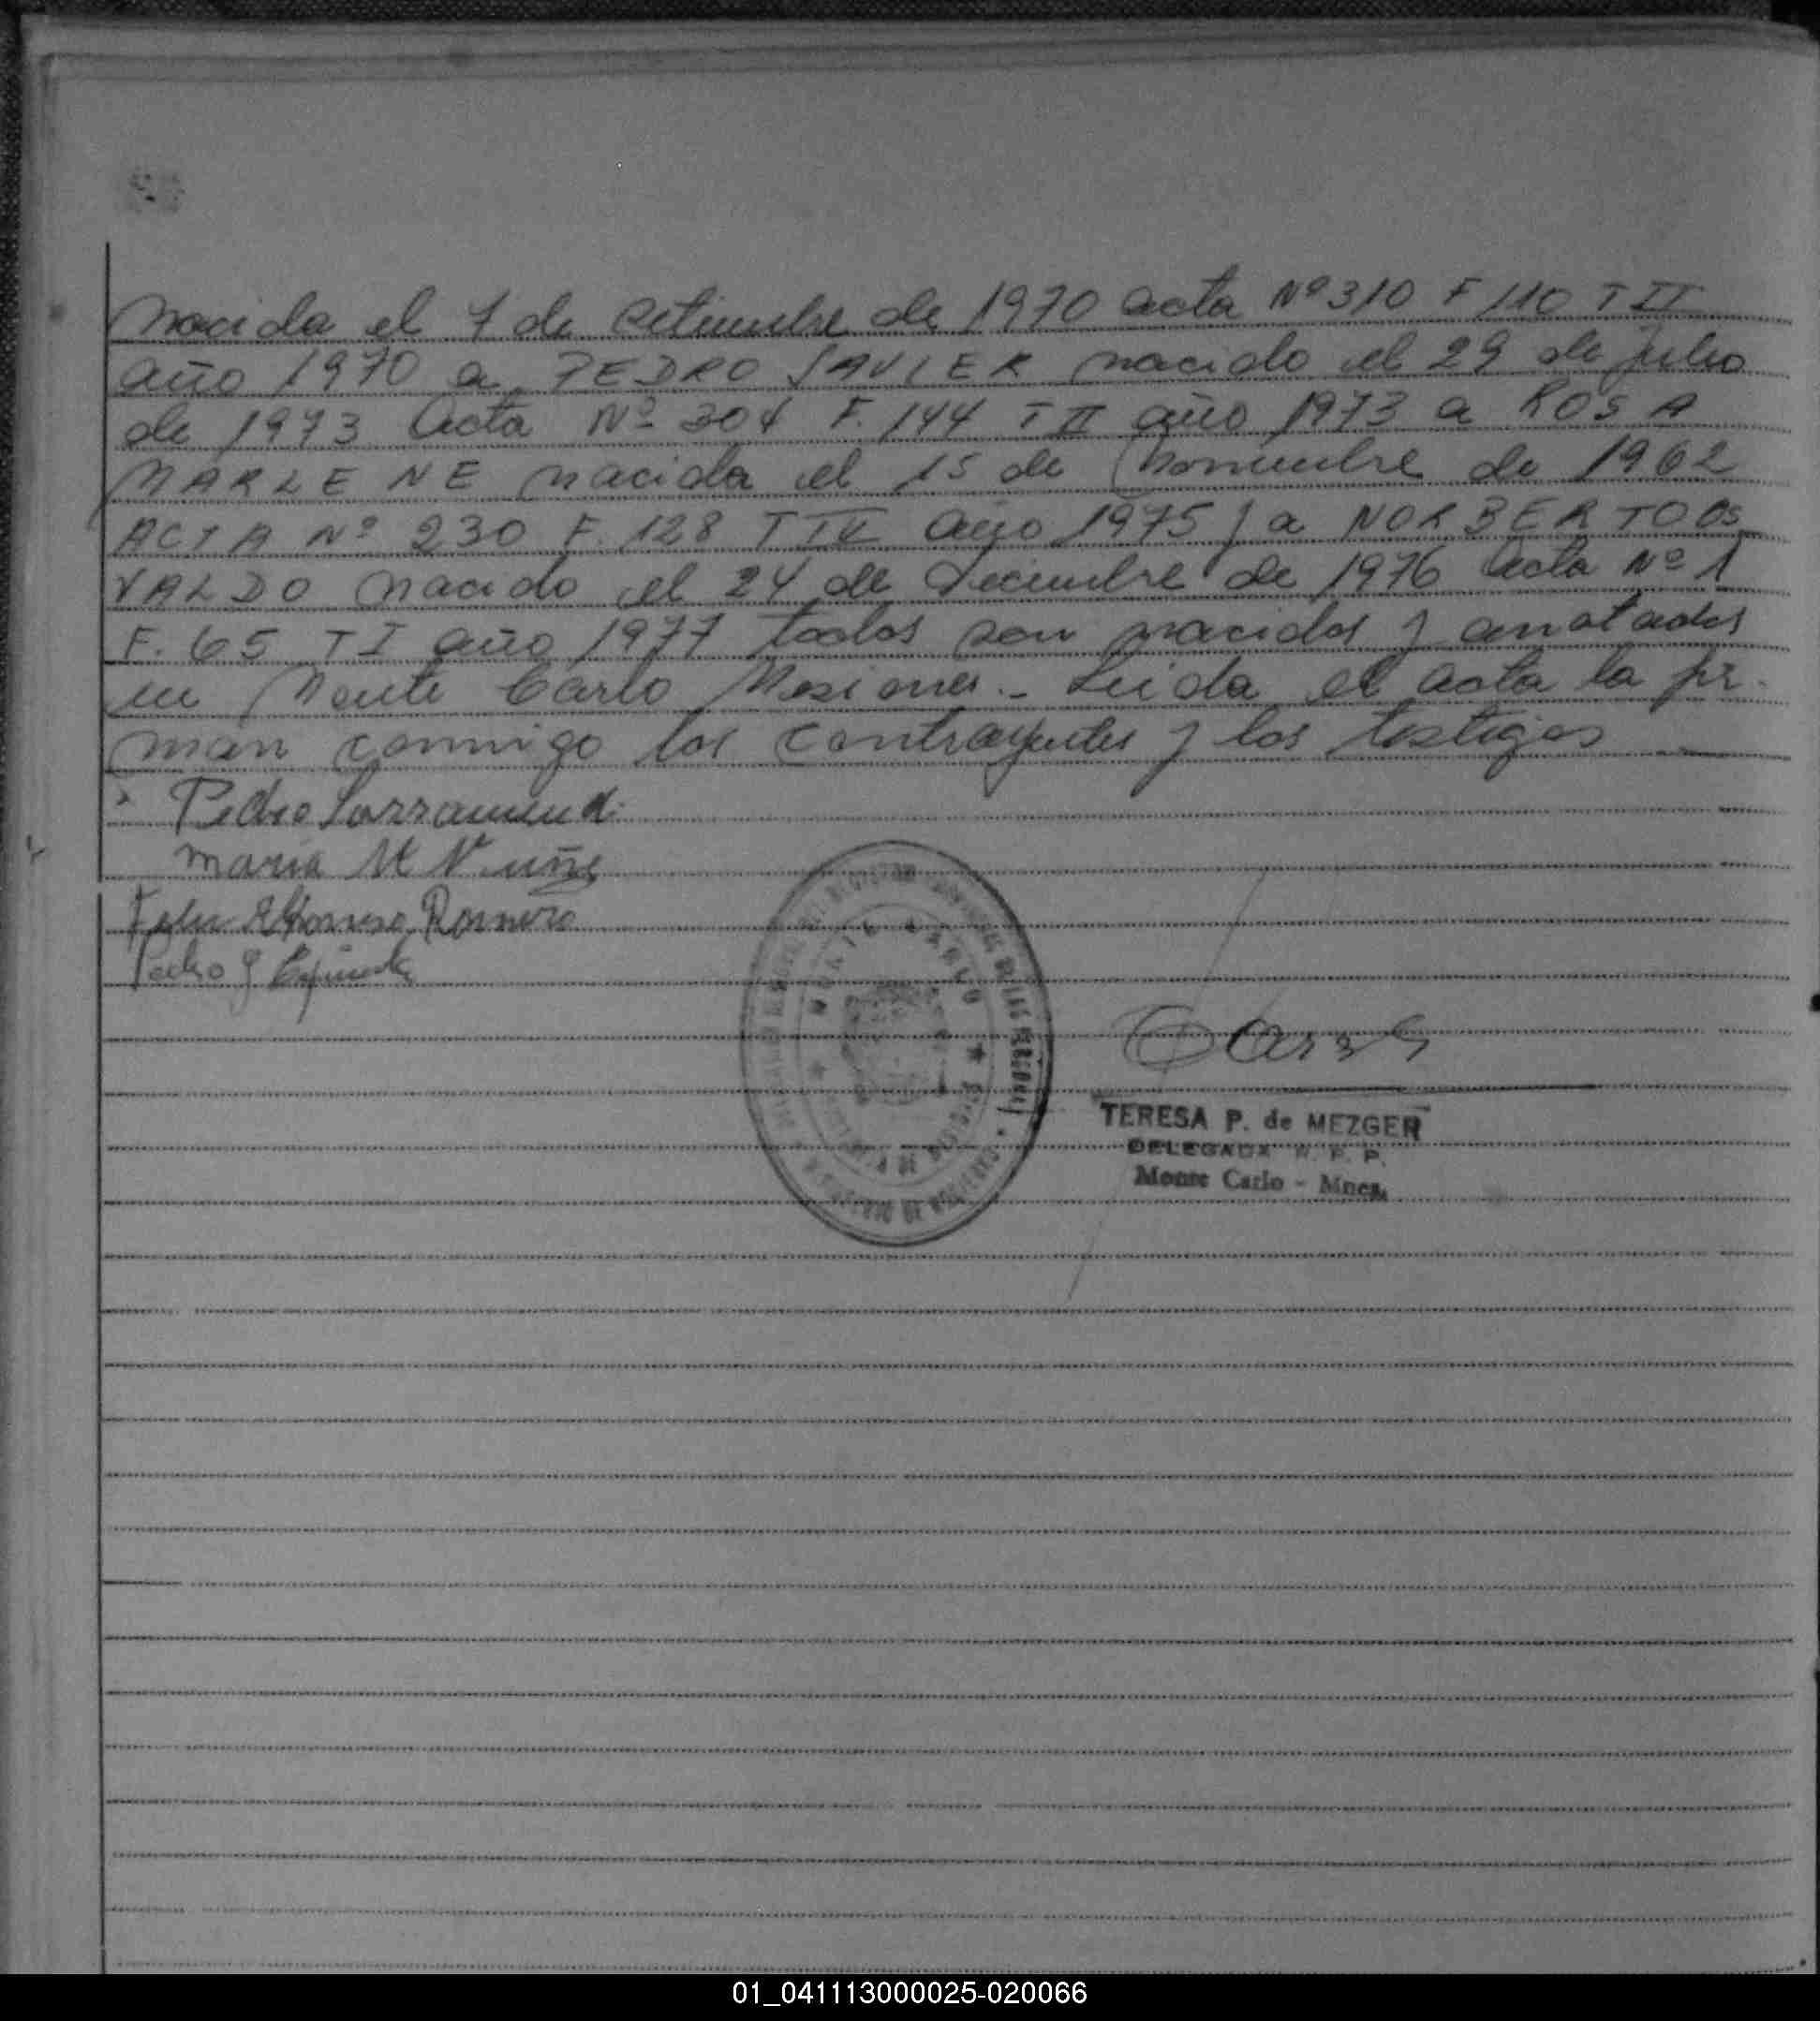 nacida el 7 de setiembre de 1970 acta Nº 310 F 110 T II
año 1970 a PEDRO JAVIER nacido el 29 de Julio
de 1973 Acta Nº 304 F. 144 T II año 1973 a ROSA
MARLENE nacida el 15 de noviembre de 1962
ACTA Nº 230 F. 128 T IV año 1975 y a NORBERTO OS
VALDO nacido el 24 de diciembre de 1976 Acta Nº 1
F. 65 T I año 1977 todos son nacidos y anotados
en Monte Carlo Misiones.- Leida el acta la fir-
man conmigo los contrayentes y los testigos
Pedro Larramendi
maria M Nuñe
Alfonso Romero
Pedro
MONTE CARLO
TERESA P. de MEZGER
DELEGADA R. P. P.
Monte Carlo - Mnes.
01_041113000025-020066